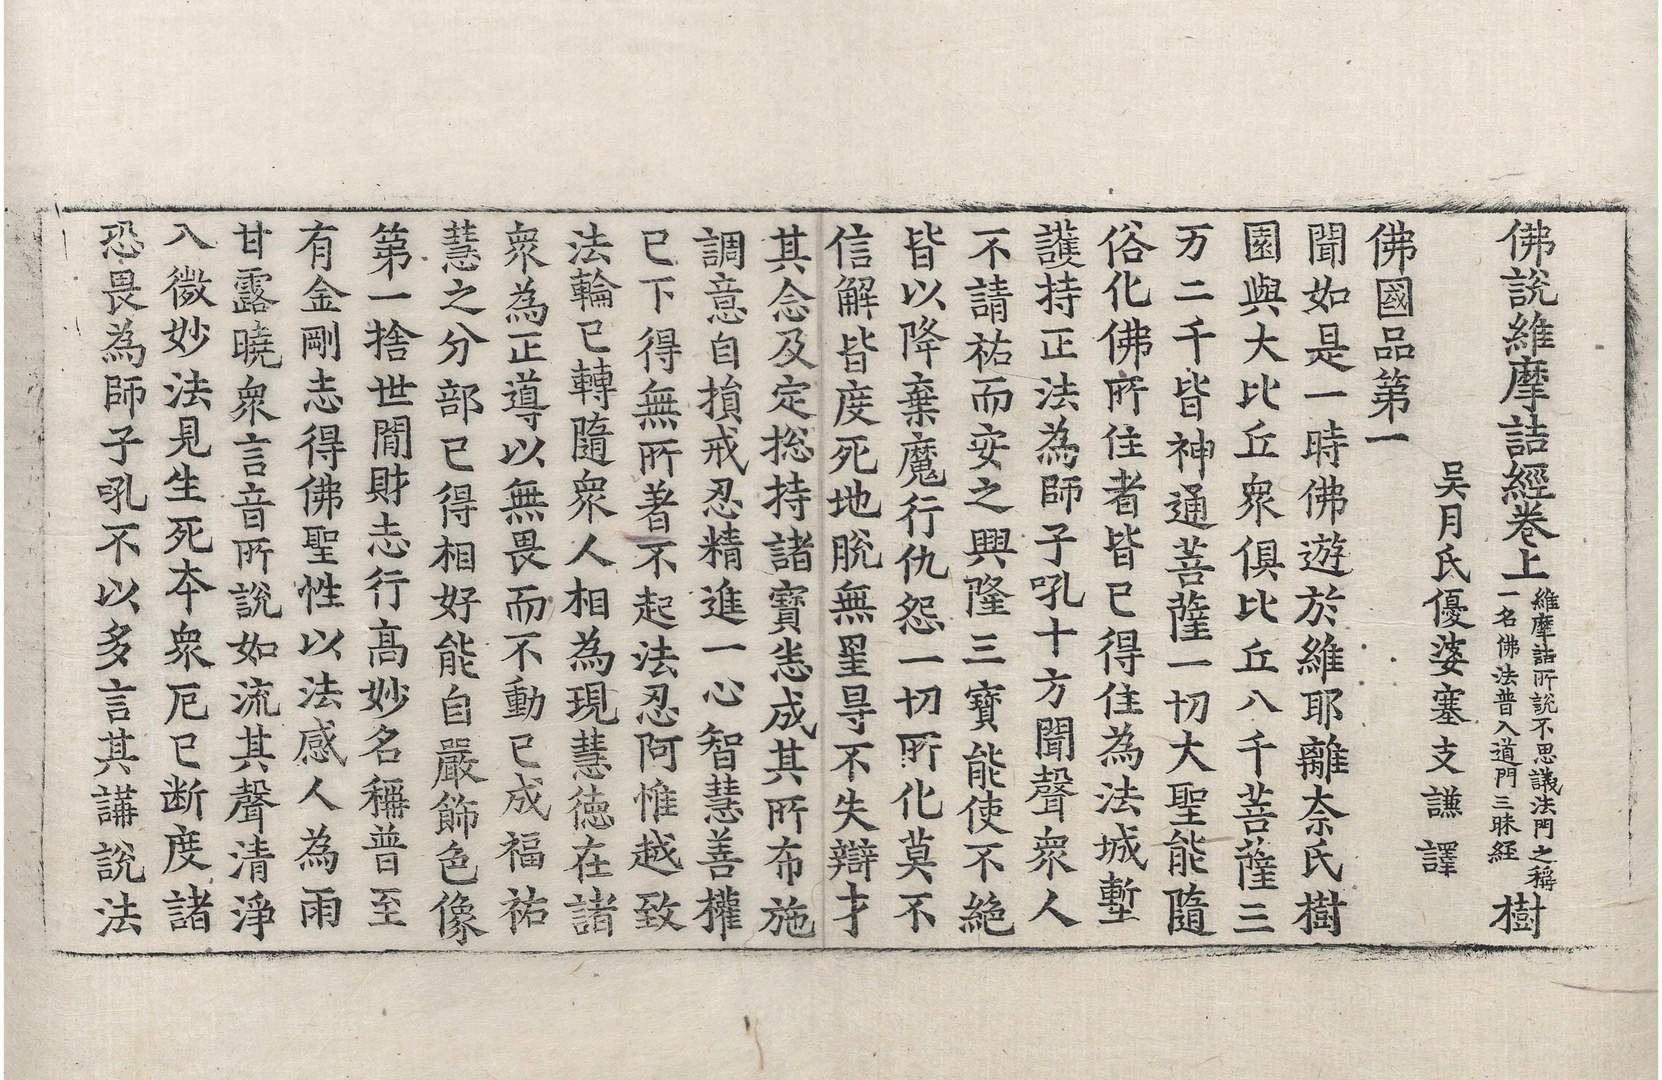 佛說維摩詰經卷上 維摩詰所說不思議法門之稱 一名佛法普入道門三昧經 樹
吴月氏優婆塞支謙譯
佛國品第一
聞如是一時佛遊於維耶離柰氏樹
園與大比丘衆俱比丘八千菩薩三
万二千皆神通菩薩一切大聖能隨
俗化佛所住者皆已得住為法城塹
護持正法為師子吼十方聞聲衆人
不請祐而安之興隆三寶能使不絕
皆以降棄魔行仇怨一切所化莫不
信解皆度死地脫無罣㝵不失辯才
其念及定揔持諸寶悉成其所布施
調意自損戒忍精進一心智慧善權
已下得無所著不起法忍阿惟越致
法輪已轉隨衆人相為現慧德在諸
衆為正導以無畏而不動已成福祐
慧之分部已得相好能自嚴飾色像
第一捨世閒財志行高妙名稱普至
有金剛志得佛聖性以法感人為雨
甘露曉衆言音所說如流其聲清淨
入微妙法見生死本衆厄已断度諸
恐畏為師子吼不以多言其講說法